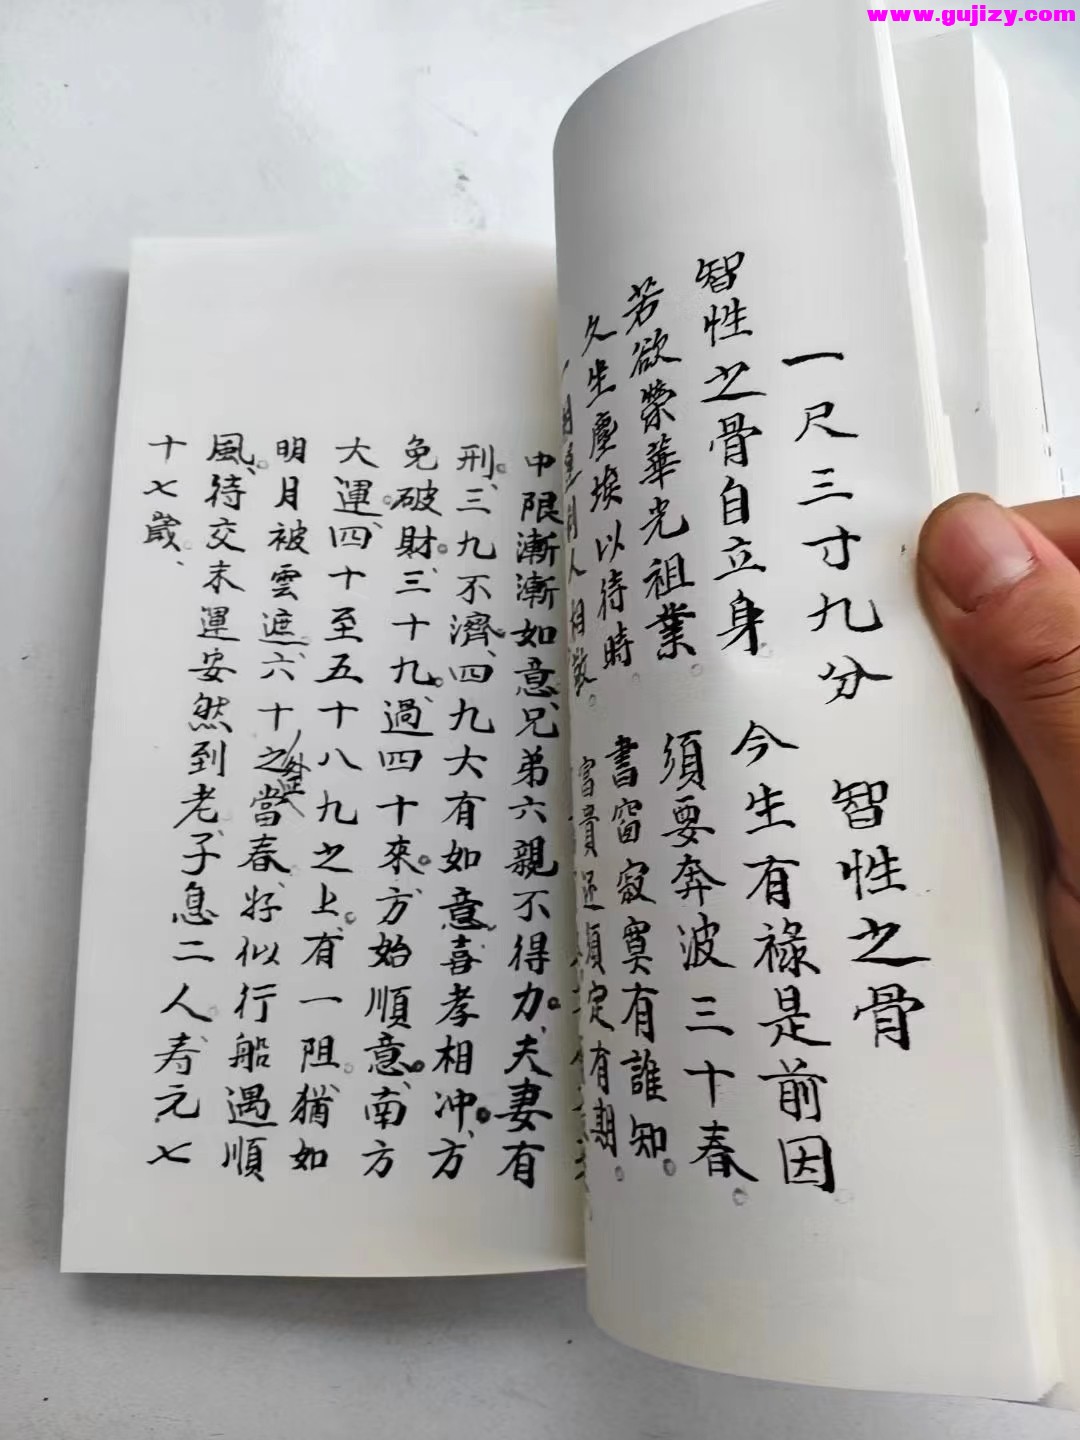 www.gujizy.com
一尺三寸九分 智性之骨
智性之骨自立身。今生有祿是前因
若欲榮華光祖業。須要奔波三十春。
久坐塵埃以待時。書窗寂寞有誰知。
人相敬。富貴還須定有期。
中限漸漸如意、兄弟六親不得力。夫妻有
刑。三九不濟、四九大有如意喜孝相冲。方
免破財。三十九。過四十來。方始順意。南方
大運、四十至五十八九之上。有一阻。猶如
明月被雲遮。六十之外正當春、好似行船遇順
風。待交末運安然到老、子息二人、寿元七
十七歲、